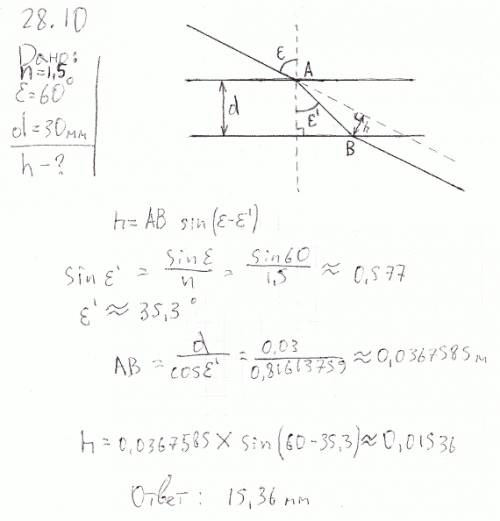 28.10
Дано:
n=1,5
ε=60°
d=30мм
h-?
ε
A
d
ε'
h
B
h=AB sin(ε-ε')
sin ε' = sin ε / n = sin 60 / 1,5 ≈ 0,577
ε' ≈ 35,3°
AB = d / cos ε' = 0,03 / 0,81613759 ≈ 0,0367585 м
h=0,0367585 × sin(60-35,3) ≈ 0,01536
Ответ: 15,36 мм